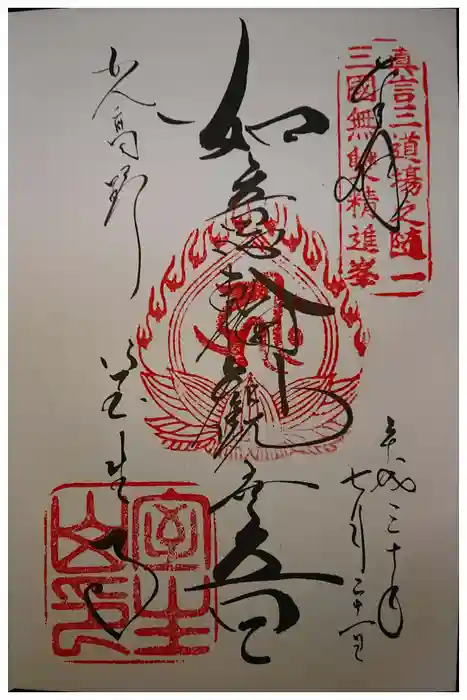 真言三道場之随一
三國無雙精進峯
奉拝
平成三十年
七月二十一日
如意輪観世音
女人高野
室生寺
室生
山印